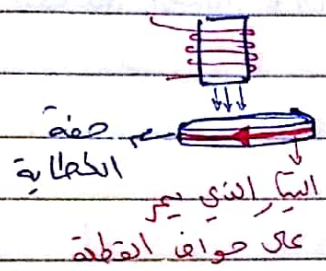 حفة
القطابة
التيار الذي يمر
على حواف القطبة